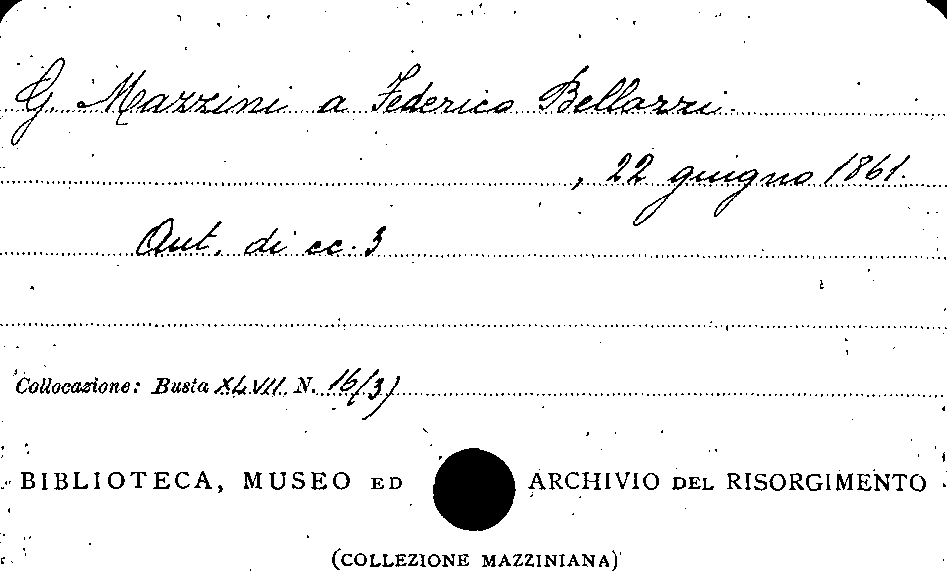 G. Mazzini a Federico Bellazzi
, 22 giugno 1861.
Aut. di cc. 3
Collocazione: Busta XLVII. N. 16(3)
BIBLIOTECA, MUSEO ED ARCHIVIO DEL RISORGIMENTO
(COLLEZIONE MAZZINIANA)